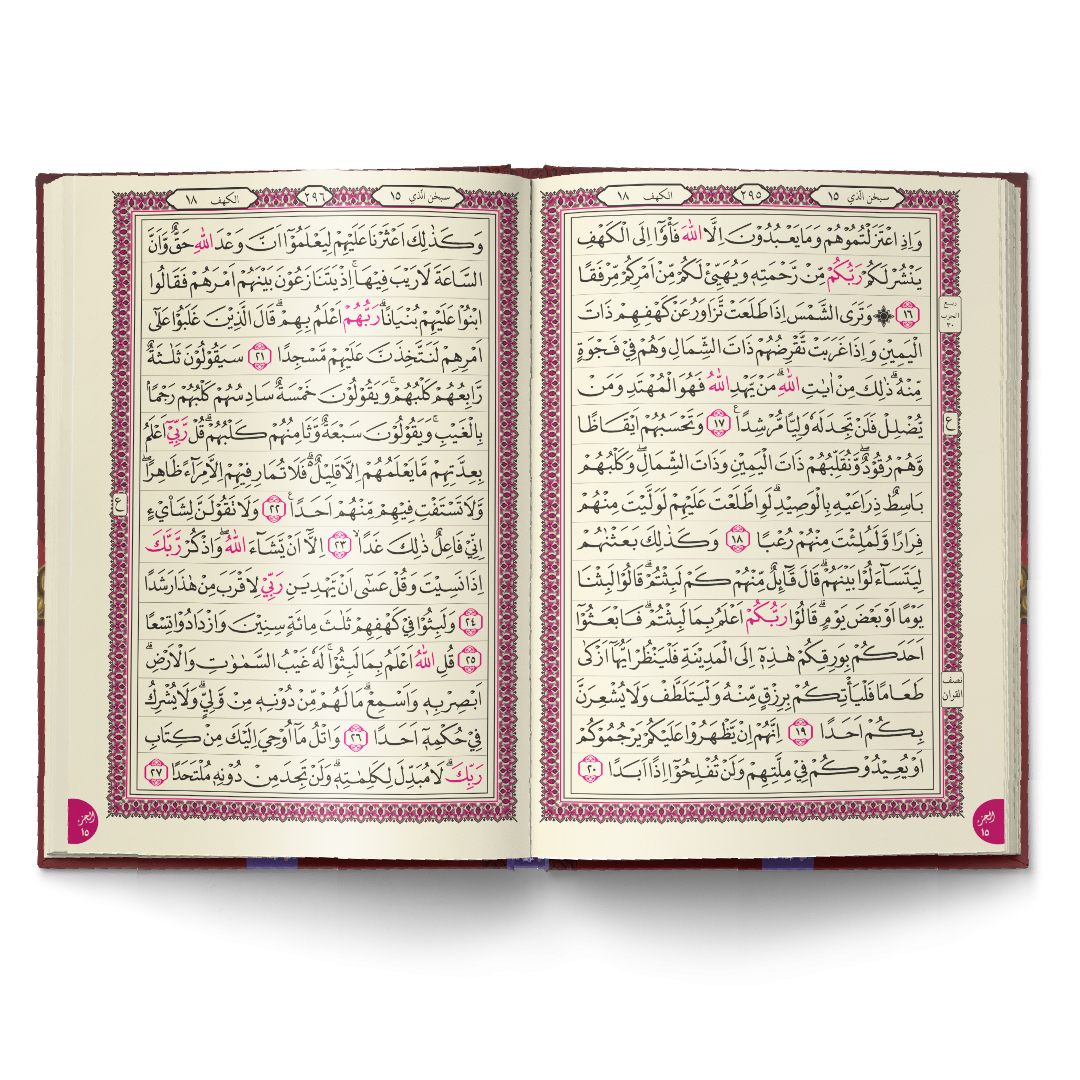 سبحٰن الّذي ١٥
٢٩٥
الكهف ١٨
وَاِذِ اعْتَزَلْتُمُوْهُمْ وَمَا يَعْبُدُوْنَ اِلَّا اللّٰهَ فَأْوٗٓا اِلَى الْكَهْفِ
يَنْشُرْ لَكُمْ رَبُّكُمْ مِّنْ رَّحْمَتِهٖ وَيُهَيِّئْ لَكُمْ مِّنْ اَمْرِكُمْ مِّرْفَقًا
١٦ ۞ وَتَرَى الشَّمْسَ اِذَا طَلَعَتْ تَّزَاوَرُ عَنْ كَهْفِهِمْ ذَاتَ
الْيَمِيْنِ وَاِذَا غَرَبَتْ تَّقْرِضُهُمْ ذَاتَ الشِّمَالِ وَهُمْ فِيْ فَجْوَةٍ
مِّنْهُۗ ذٰلِكَ مِنْ اٰيٰتِ اللّٰهِۗ مَنْ يَّهْدِ اللّٰهُ فَهُوَ الْمُهْتَدِ وَمَنْ
يُّضْلِلْ فَلَنْ تَجِدَ لَهٗ وَلِيًّا مُّرْشِدًا ࣖ ١٧ وَتَحْسَبُهُمْ اَيْقَاظًا
وَّهُمْ رُقُوْدٌ ۖوَّنُقَلِّبُهُمْ ذَاتَ الْيَمِيْنِ وَذَاتَ الشِّمَالِ ۖوَكَلْبُهُمْ
بَاسِطٌ ذِرَاعَيْهِ بِالْوَصِيْدِۗ لَوِ اطَّلَعْتَ عَلَيْهِمْ لَوَلَّيْتَ مِنْهُمْ
فِرَارًا وَّلَمُلِئْتَ مِنْهُمْ رُعْبًا ١٨ وَكَذٰلِكَ بَعَثْنٰهُمْ
لِيَتَسَاۤءَلُوْا بَيْنَهُمْۗ قَالَ قَاۤىِٕلٌ مِّنْهُمْ كَمْ لَبِثْتُمْۗ قَالُوْا لَبِثْنَا
يَوْمًا اَوْ بَعْضَ يَوْمٍۗ قَالُوْا رَبُّكُمْ اَعْلَمُ بِمَا لَبِثْتُمْۗ فَابْعَثُوْٓا
اَحَدَكُمْ بِوَرِقِكُمْ هٰذِهٖٓ اِلَى الْمَدِيْنَةِ فَلْيَنْظُرْ اَيُّهَآ اَزْكٰى
طَعَامًا فَلْيَأْتِكُمْ بِرِزْقٍ مِّنْهُ وَلْيَتَلَطَّفْ وَلَا يُشْعِرَنَّ
بِكُمْ اَحَدًا ١٩ اِنَّهُمْ اِنْ يَّظْهَرُوْا عَلَيْكُمْ يَرْجُمُوْكُمْ
اَوْ يُعِيْدُوْكُمْ فِيْ مِلَّتِهِمْ وَلَنْ تُفْلِحُوْٓا اِذًا اَبَدًا ٢٠
ربع
الحزب
٣٠
ع
نصف
القرآن
الجزء
١٥
سبحٰن الّذي ١٥
٢٩٦
الكهف ١٨
وَكَذٰلِكَ اَعْثَرْنَا عَلَيْهِمْ لِيَعْلَمُوْٓا اَنَّ وَعْدَ اللّٰهِ حَقٌّ وَّاَنَّ
السَّاعَةَ لَا رَيْبَ فِيْهَاۚ اِذْ يَتَنَازَعُوْنَ بَيْنَهُمْ اَمْرَهُمْ فَقَالُوا
ابْنُوْا عَلَيْهِمْ بُنْيَانًاۗ رَبُّهُمْ اَعْلَمُ بِهِمْۗ قَالَ الَّذِيْنَ غَلَبُوْا عَلٰٓى
اَمْرِهِمْ لَنَتَّخِذَنَّ عَلَيْهِمْ مَّسْجِدًا ٢١ سَيَقُوْلُوْنَ ثَلٰثَةٌ
رَّابِعُهُمْ كَلْبُهُمْۚ وَيَقُوْلُوْنَ خَمْسَةٌ سَادِسُهُمْ كَلْبُهُمْ رَجْمًاۢ
بِالْغَيْبِۚ وَيَقُوْلُوْنَ سَبْعَةٌ وَّثَامِنُهُمْ كَلْبُهُمْۗ قُلْ رَّبِّيْٓ اَعْلَمُ
بِعِدَّتِهِمْ مَّا يَعْلَمُهُمْ اِلَّا قَلِيْلٌ ەۗ فَلَا تُمَارِ فِيْهِمْ اِلَّا مِرَاۤءً ظَاهِرًا ۖ
وَّلَا تَسْتَفْتِ فِيْهِمْ مِّنْهُمْ اَحَدًا ࣖ ٢٢ وَلَا تَقُوْلَنَّ لِشَا۟يْءٍ
اِنِّيْ فَاعِلٌ ذٰلِكَ غَدًاۙ ٢٣ اِلَّآ اَنْ يَّشَاۤءَ اللّٰهُ ۖوَاذْكُرْ رَّبَّكَ
اِذَا نَسِيْتَ وَقُلْ عَسٰٓى اَنْ يَّهْدِيَنِ رَبِّيْ لِاَقْرَبَ مِنْ هٰذَا رَشَدًا
٢٤ وَلَبِثُوْا فِيْ كَهْفِهِمْ ثَلٰثَ مِائَةٍ سِنِيْنَ وَازْدَادُوْا تِسْعًا
٢٥ قُلِ اللّٰهُ اَعْلَمُ بِمَا لَبِثُوْاۚ لَهٗ غَيْبُ السَّمٰوٰتِ وَالْاَرْضِۗ
اَبْصِرْ بِهٖ وَاَسْمِعْۗ مَا لَهُمْ مِّنْ دُوْنِهٖ مِنْ وَّلِيٍّۗ وَلَا يُشْرِكُ
فِيْ حُكْمِهٖٓ اَحَدًا ٢٦ وَاتْلُ مَآ اُوْحِيَ اِلَيْكَ مِنْ كِتَابِ
رَبِّكَۗ لَا مُبَدِّلَ لِكَلِمٰتِهٖۗ وَلَنْ تَجِدَ مِنْ دُوْنِهٖ مُلْتَحَدًا ٢٧
ع
الجزء
١٥